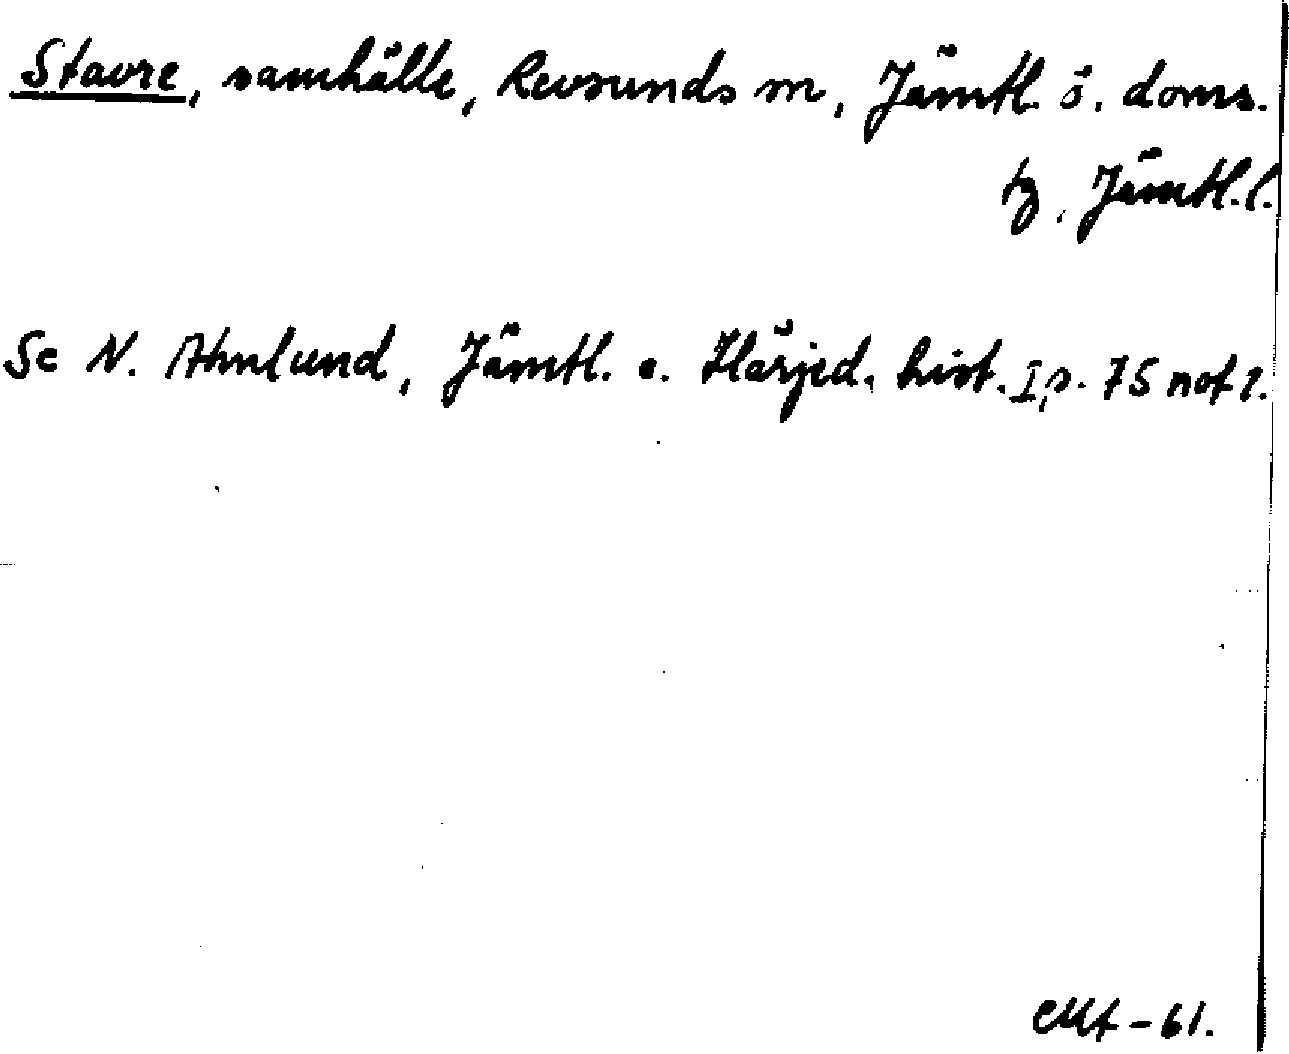 Stavre, samhälle, Revsunds sn, Jämtl. ö. doms.
tg, Jämtl. l.
Se N. Ahnlund, Jämtl. o. Härjed. hist. I, s. 75 not 2.
-61.